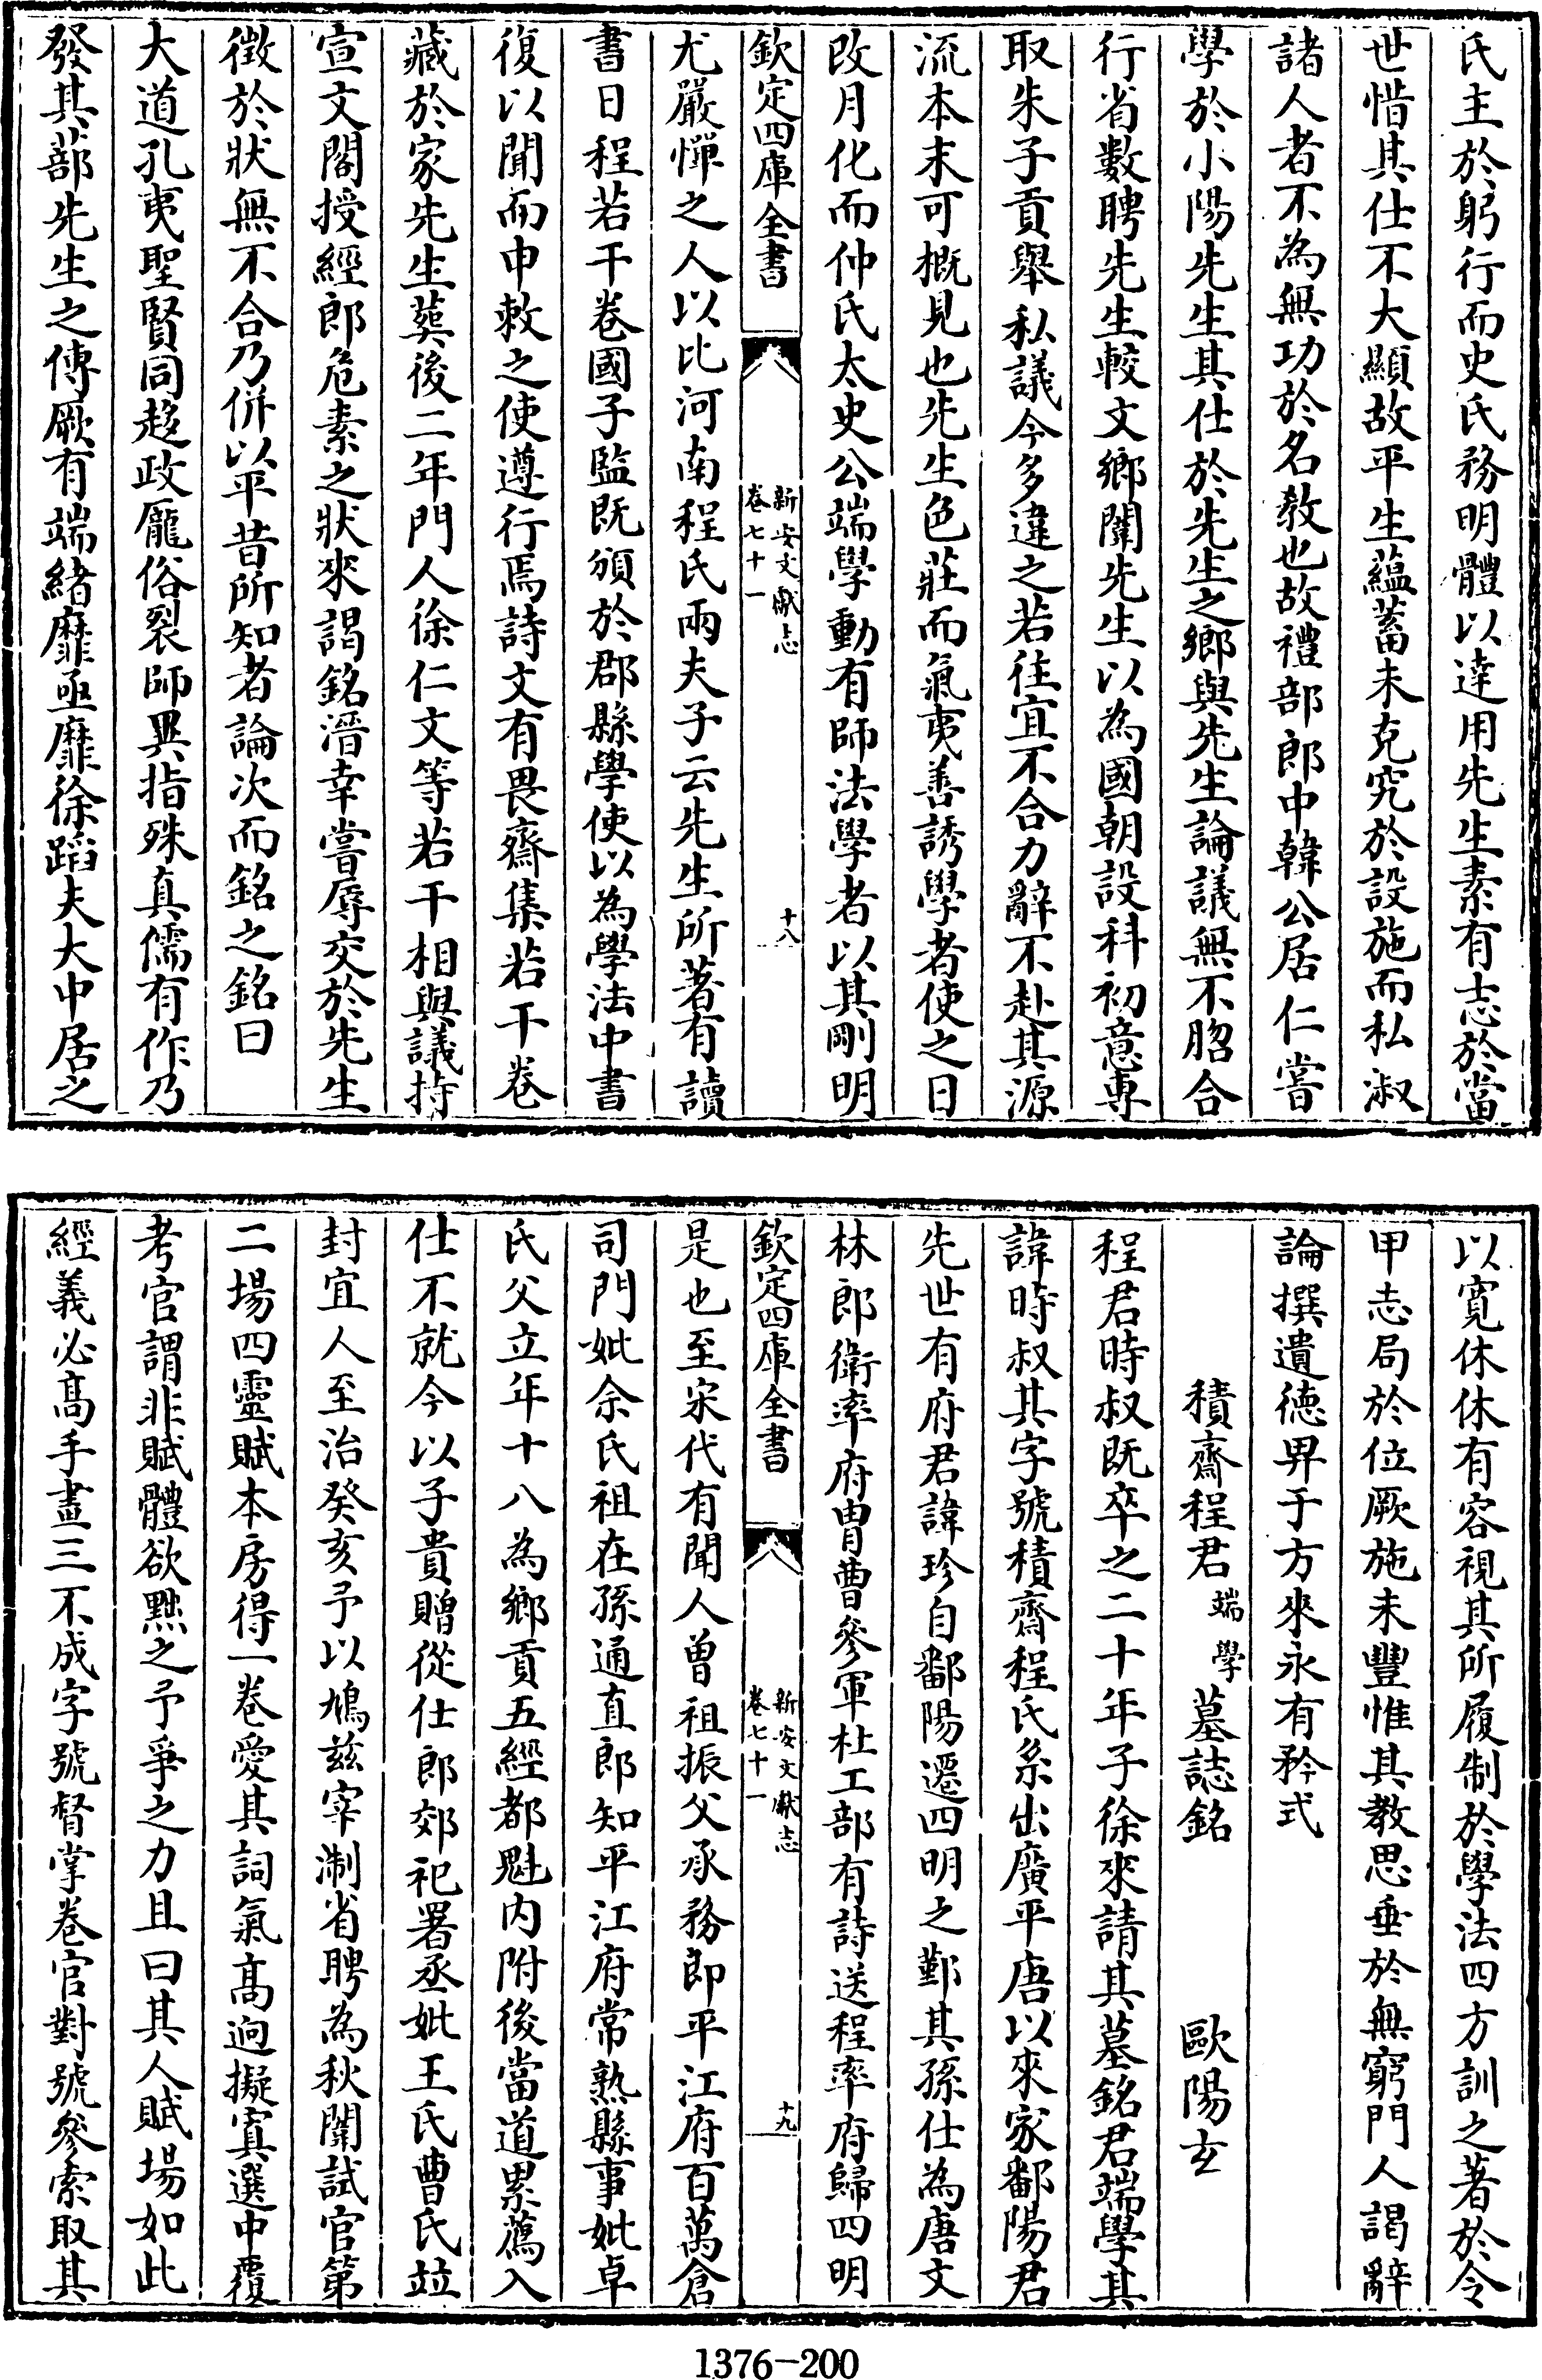 氏主於躬行而史氏務明體以達用先生素有志於當
世惜其仕不大顯故平生蘊蓄未克究於設施而私淑
諸人者不為無功於名教也故禮部郎中韓公居仁嘗
學於小陽先生其仕於先生之鄉與先生論議無不脗合
行省數聘先生較文鄉闈先生以為國朝設科初意專
取朱子貢舉私議今多違之若往宜不合力辭不赴其源
流本末可概見也先生色莊而氣夷善誘學者使之日
改月化而仲氏太史公端學動有師法學者以其剛明
欽定四庫全書
新安文獻志
卷七十一
十八
尤嚴憚之人以比河南程氏兩夫子云先生所著有讀
書日程若干卷國子監既頒於郡縣學使以為學法中書
復以聞而申敕之使遵行焉詩文有畏齋集若干卷
藏於家先生葬後二年門人徐仁文等若干相與議持
宣文閣授經郎危素之狀來謁銘溍幸嘗辱交於先生
徵於狀無不合乃併以平昔所知者論次而銘之銘曰
大道孔夷聖賢同趍政厖俗裂師異指殊真儒有作乃
發其蔀先生之傳厥有端緒靡亟靡徐蹈夫大中居之
以寬休休有容視其所履制於學法四方訓之著於令
甲志局於位厥施未豐惟其教思垂於無窮門人謁辭
論撰遺德畀于方來永有矜式
積齋程君端學墓誌銘　歐陽玄
程君時叔既卒之二十年子徐來請其墓銘君端學其
諱時叔其字號積齋程氏系出廣平唐以來家鄱陽君
先世有府君諱珍自鄱陽遷四明之鄞其孫仕為唐文
林郎衛率府胄曹參軍杜工部有詩送程率府歸四明
欽定四庫全書
新安文獻志
卷七十一
十九
是也至宋代有聞人曾祖振父承務郎平江府百萬倉
司門妣余氏祖在孫通直郎知平江府常熟縣事妣卓
氏父立年十八為鄉貢五經都魁內附後當道累薦入
仕不就今以子貴贈從仕郎郊祀署丞妣王氏曹氏竝
封宜人至治癸亥予以鳩茲宰淛省聘為秋闈試官第
二場四靈賦本房得一卷愛其詞氣高迥擬寘選中覆
考官謂非賦體欲黜之予爭之力且曰其人賦場如此
經義必高手畫三不成字號督掌卷官對號參索取其
1376-200